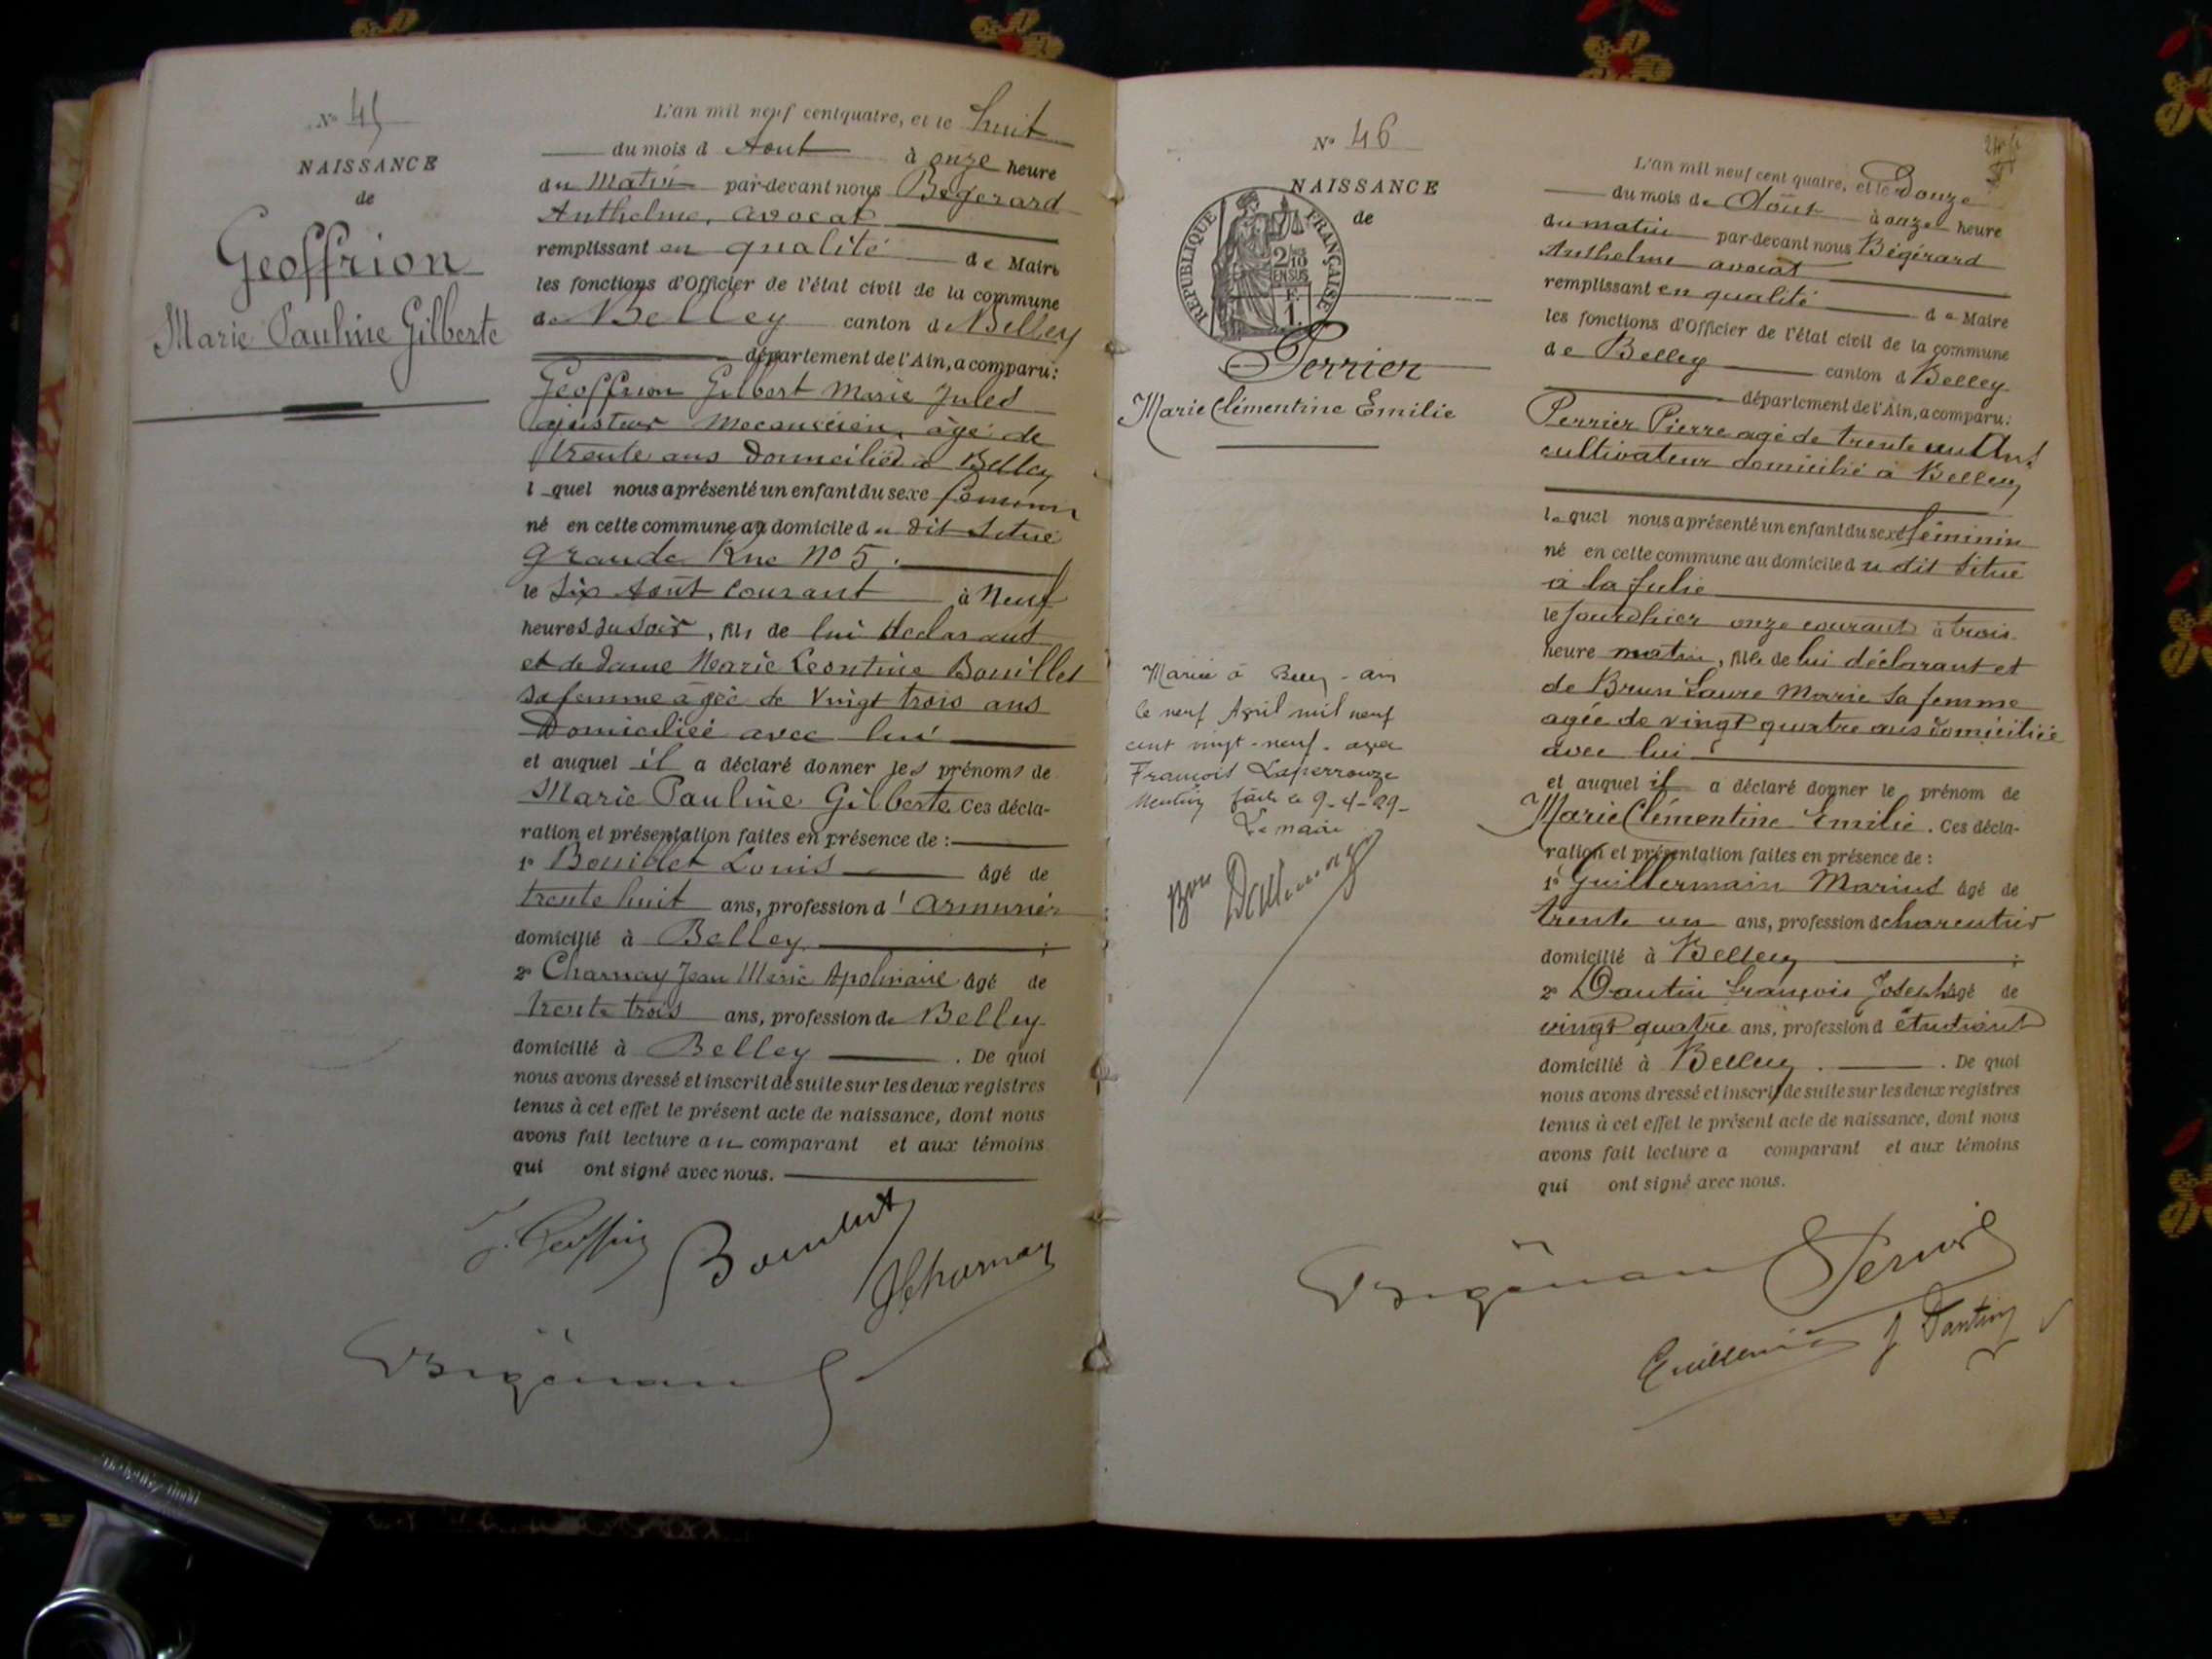 No 45
NAISSANCE
de
Geoffrion
Marie Pauline Gilberte
L'an mil neuf cent quatre, et le huit
du mois d Aout à onze heure
du Matin par-devant nous Bégérard
Anthelme, avocat
remplissant en qualité de Maire
les fonctions d'Officier de l'état civil de la commune
de Belley canton de Belley
département de l'Ain, a comparu:
Geoffrion Gilbert Marie Jules
ajusteur mecanicien, âgé de
trente ans domicilié à Belley
l quel nous a présenté un enfant du sexe féminin
né en cette commune au domicile du dit situé
grande Rue No 5.
le six août courant à Neuf
heures du soir, fils de lui déclarant
et de dame Marie Leontine Bouillet
sa femme agée de Vingt trois ans
Domiciliée avec lui
et auquel il a déclaré donner les prénoms de
Marie Pauline Gilberte. Ces décla-
ration et présentation faites en présence de :
1° Bouillet Louis âgé de
trente huit ans, profession d'armurier
domicilié à Belley ;
2° Charnay Jean Marie Apolinaire âgé de
trente trois ans, profession de Belley
domicilié à Belley . De quoi
nous avons dressé et inscrit de suite sur les deux registres
tenus à cet effet le présent acte de naissance, dont nous
avons fait lecture au comparant et aux témoins
qui ont signé avec nous.
Bouillet
Charnay
Bégérard
No 46
NAISSANCE
de
REPUBLIQUE FRANÇAISE
2/10
EN SUS
F.
1.
Perrier
Marie Clémentine Emilie
Mariée à Belley - ain
le neuf Avril mil neuf
cent vingt-neuf. avec
François Laperrouze
Mention faite le 9-4-29-
Le maire
L'an mil neuf cent quatre, et le Douze
du mois de Aout à onze heure
du matin par-devant nous Bégérard
Anthelme avocat
remplissant en qualité de Maire
les fonctions d'Officier de l'état civil de la commune
de Belley canton d Belley
département de l'Ain, a comparu:
Perrier Pierre agé de trente un Ans
cultivateur domicilié à Belley
lequel nous a présenté un enfant du sexe féminin
né en cette commune au domicile du dit situé
à la Julie
le jourdhier onze courant à trois
heure matin, fille de lui déclarant et
de Brun Laure Marie sa femme
agée de vingt quatre ans domiciliée
avec lui
et auquel il a déclaré donner le prénom de
Marie Clémentine Emilie. Ces décla-
ration et présentation faites en présence de :
1° Guillermain Marius âgé de
trente un ans, profession de charcutier
domicilié à Belley ;
2° Dantin François Joseph âgé de
vingt quatre ans, profession d étudiant
domicilié à Belley . De quoi
nous avons dressé et inscrit de suite sur les deux registres
tenus à cet effet le présent acte de naissance, dont nous
avons fait lecture a comparant et aux témoins
qui ont signé avec nous.
Bégérard Perrier
J Dantin